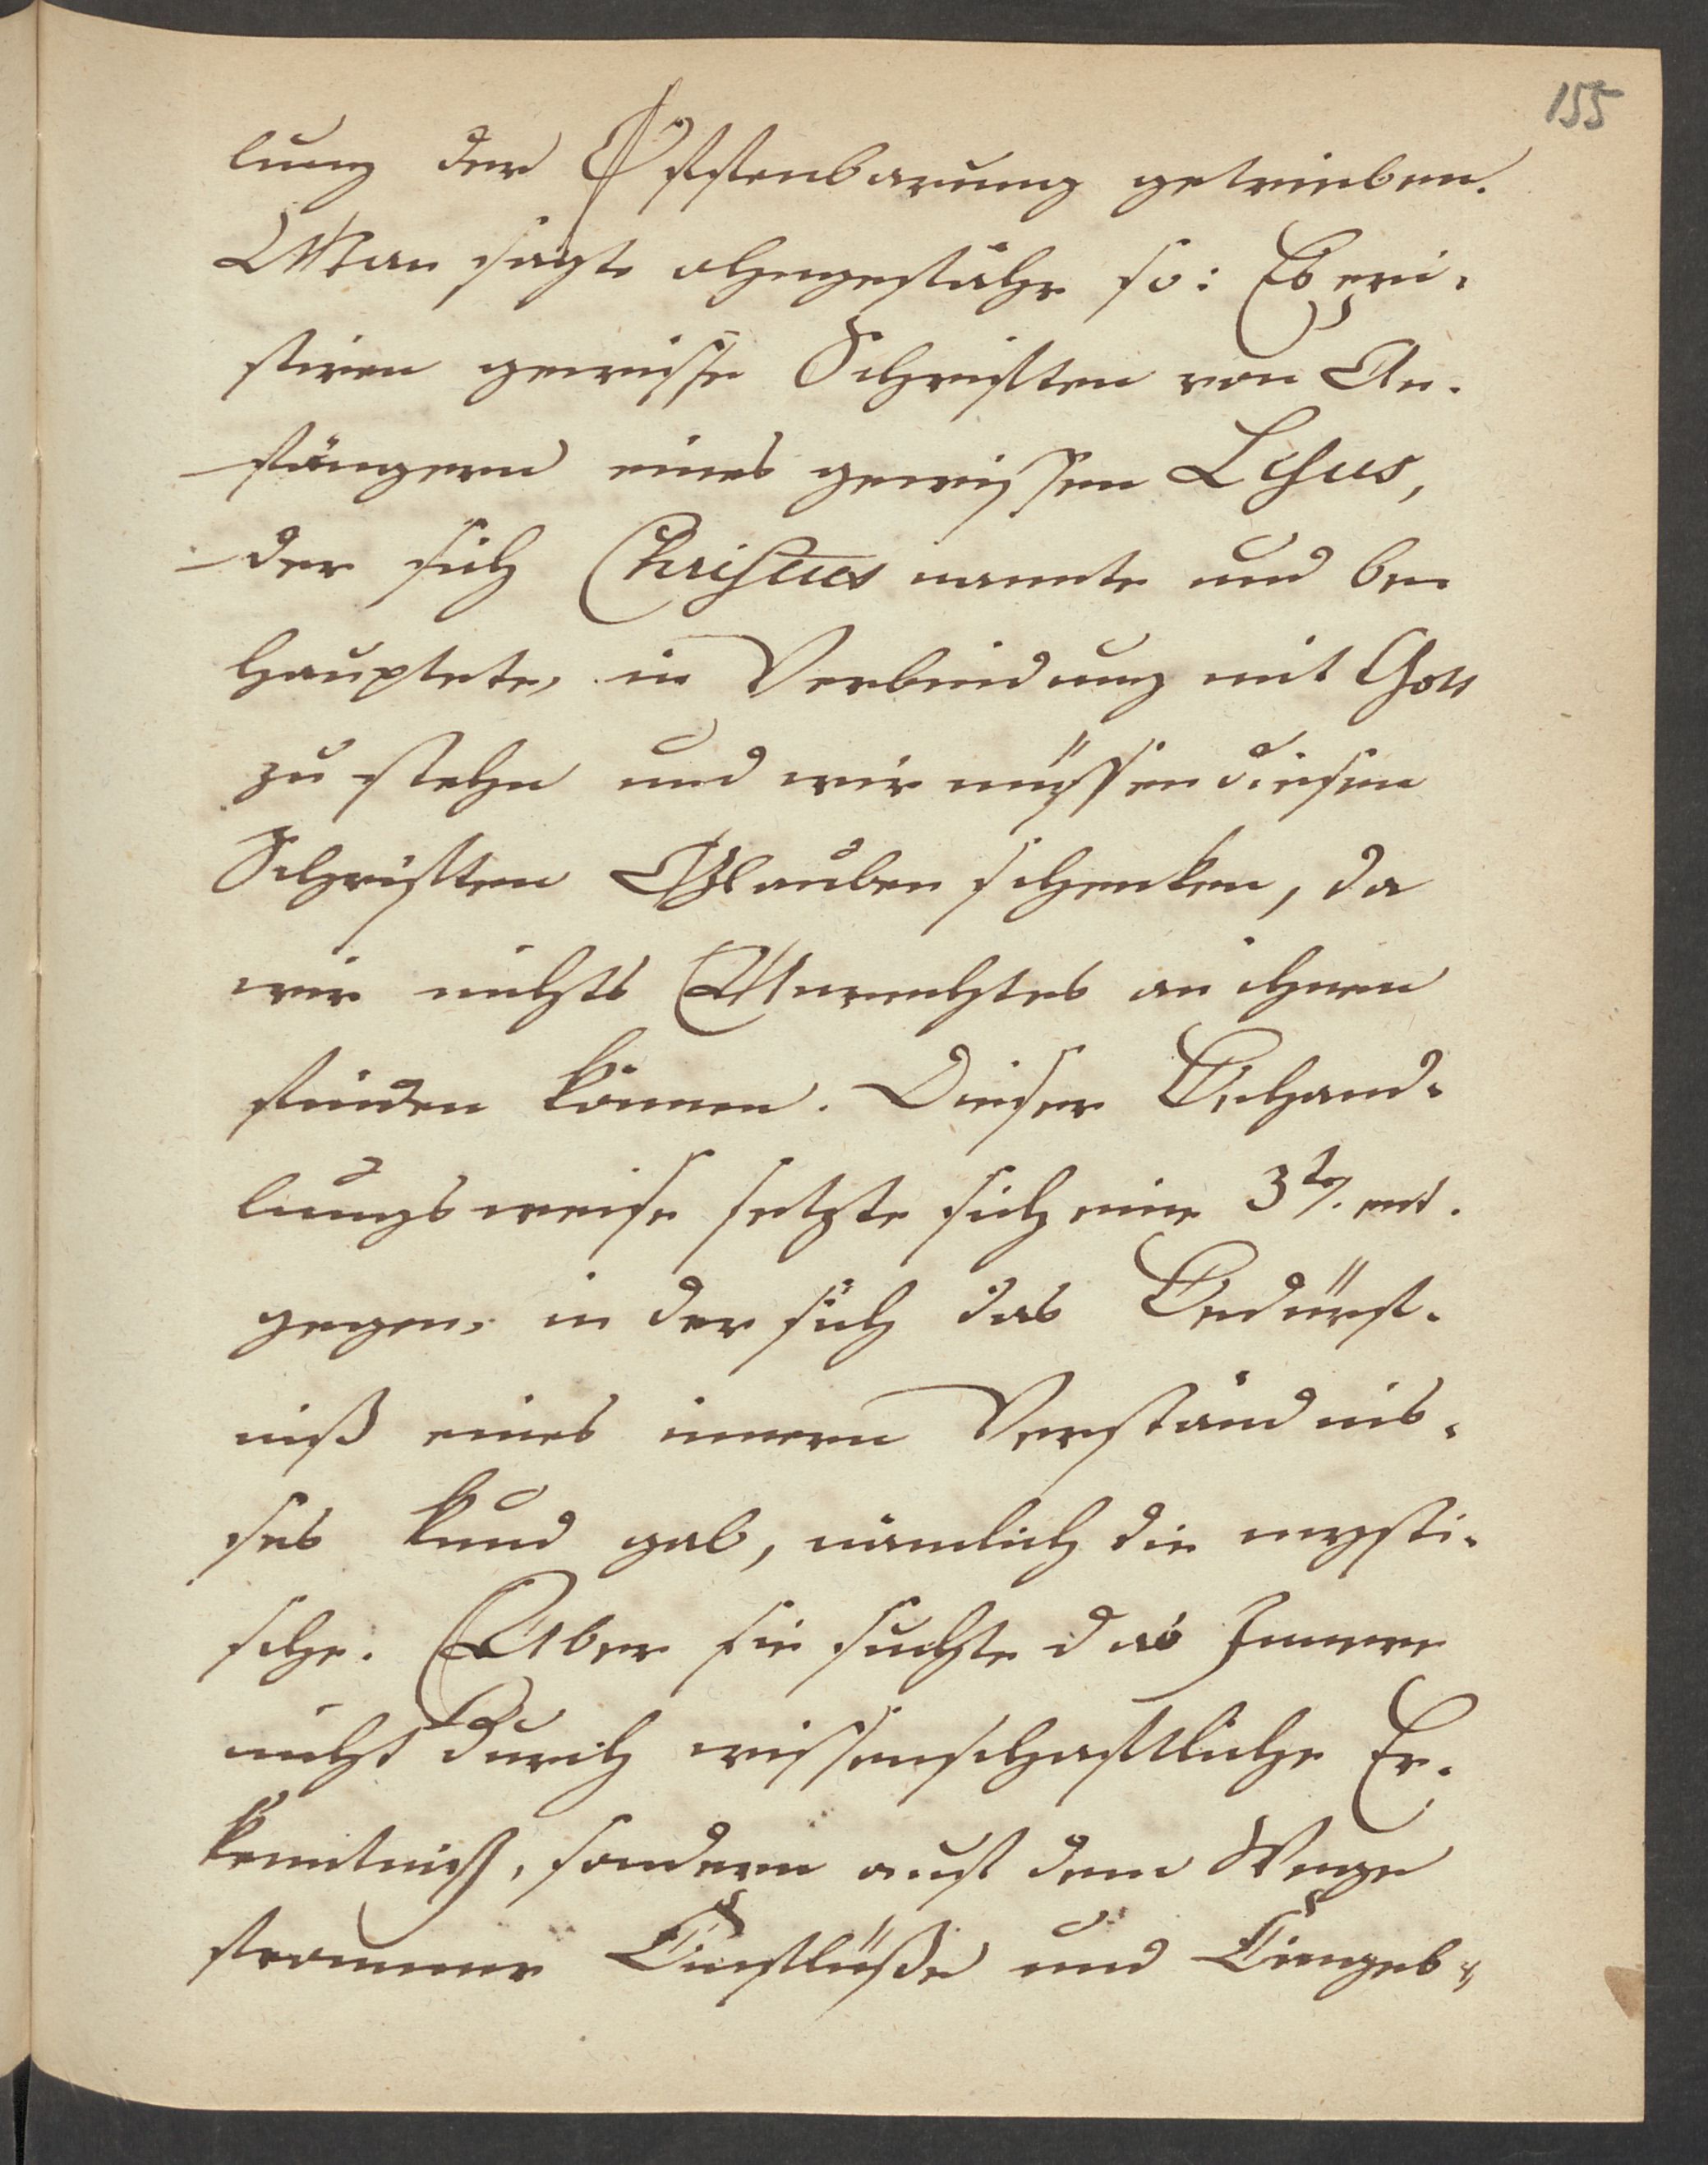 155
lung der Offenbarung getrieben.
Man sagte ohngefähr so: Es exi-
stiren gewisse Schriften von An-
fängern eines gewissen Jesus,
der sich Christus nannte und be-
hauptete, in Verbindung mit Gott
zu stehn und wir müssen diesen
Schriften Glauben schenken, da
wir nichts Unrechtes an ihnen
finden können. Dieser Behand-
lungsweise setzte sich eine 3te. ent-
gegen, in der sich das Bedürf-
niß eines innern Verständnis-
ses kund gab, nämlich die mysti-
sche. Aber sie suchte das Innere
nicht durch wissenschaftliche Er-
kenntniß, sondern auf dem Wege
frommer Einflüße und Eingeb-